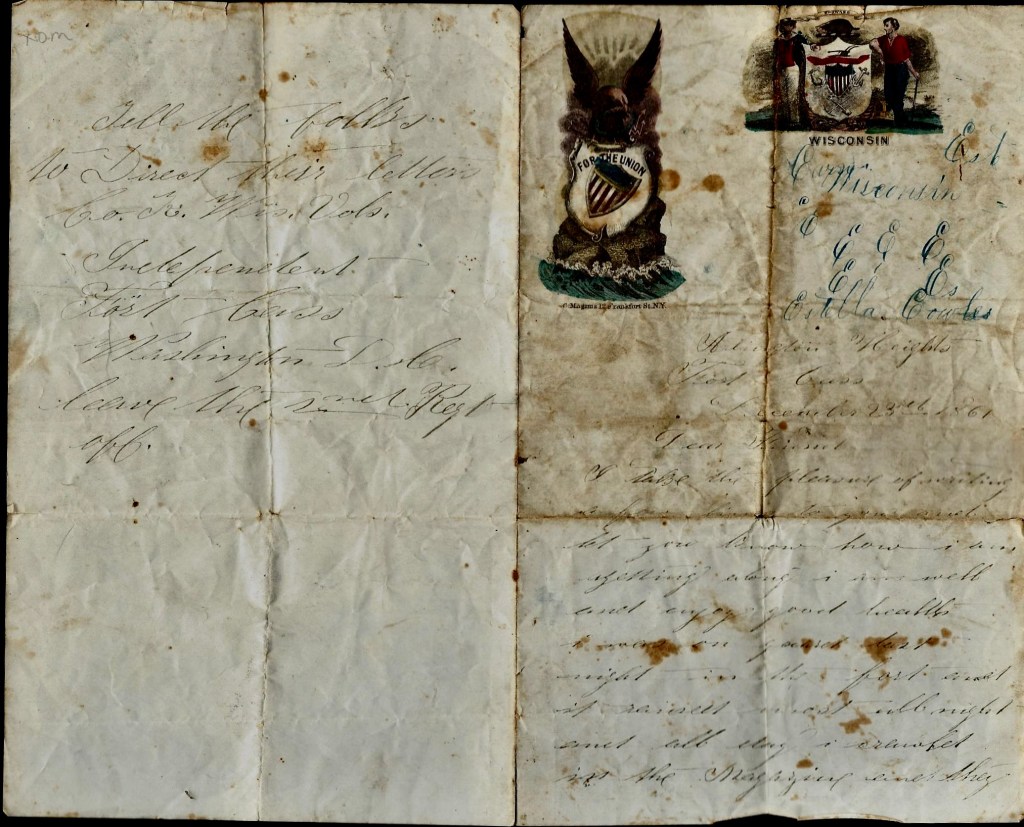 Tell the folks
to Direct their letters
Co. K. Wis. Vols.
Independent
Fort Cass
Washington D.C.
leave the 2nd Regt
off.
FOR THE UNION
C. Magnus 12 Frankfort St. N.Y.
WISCONSIN
Est
Wisconsin
E
E E E
E Es
Estella Cowles
Arlington Heights
Fort Cass
December 23rd 1861
Dear Friend
I take the pleasure of writing
to you and
let you know how i am
getting along i am well
and enjoy good health
i was on guard last
night in the fort and
it rained most all night
and all day i crawled
in the Magazine and they